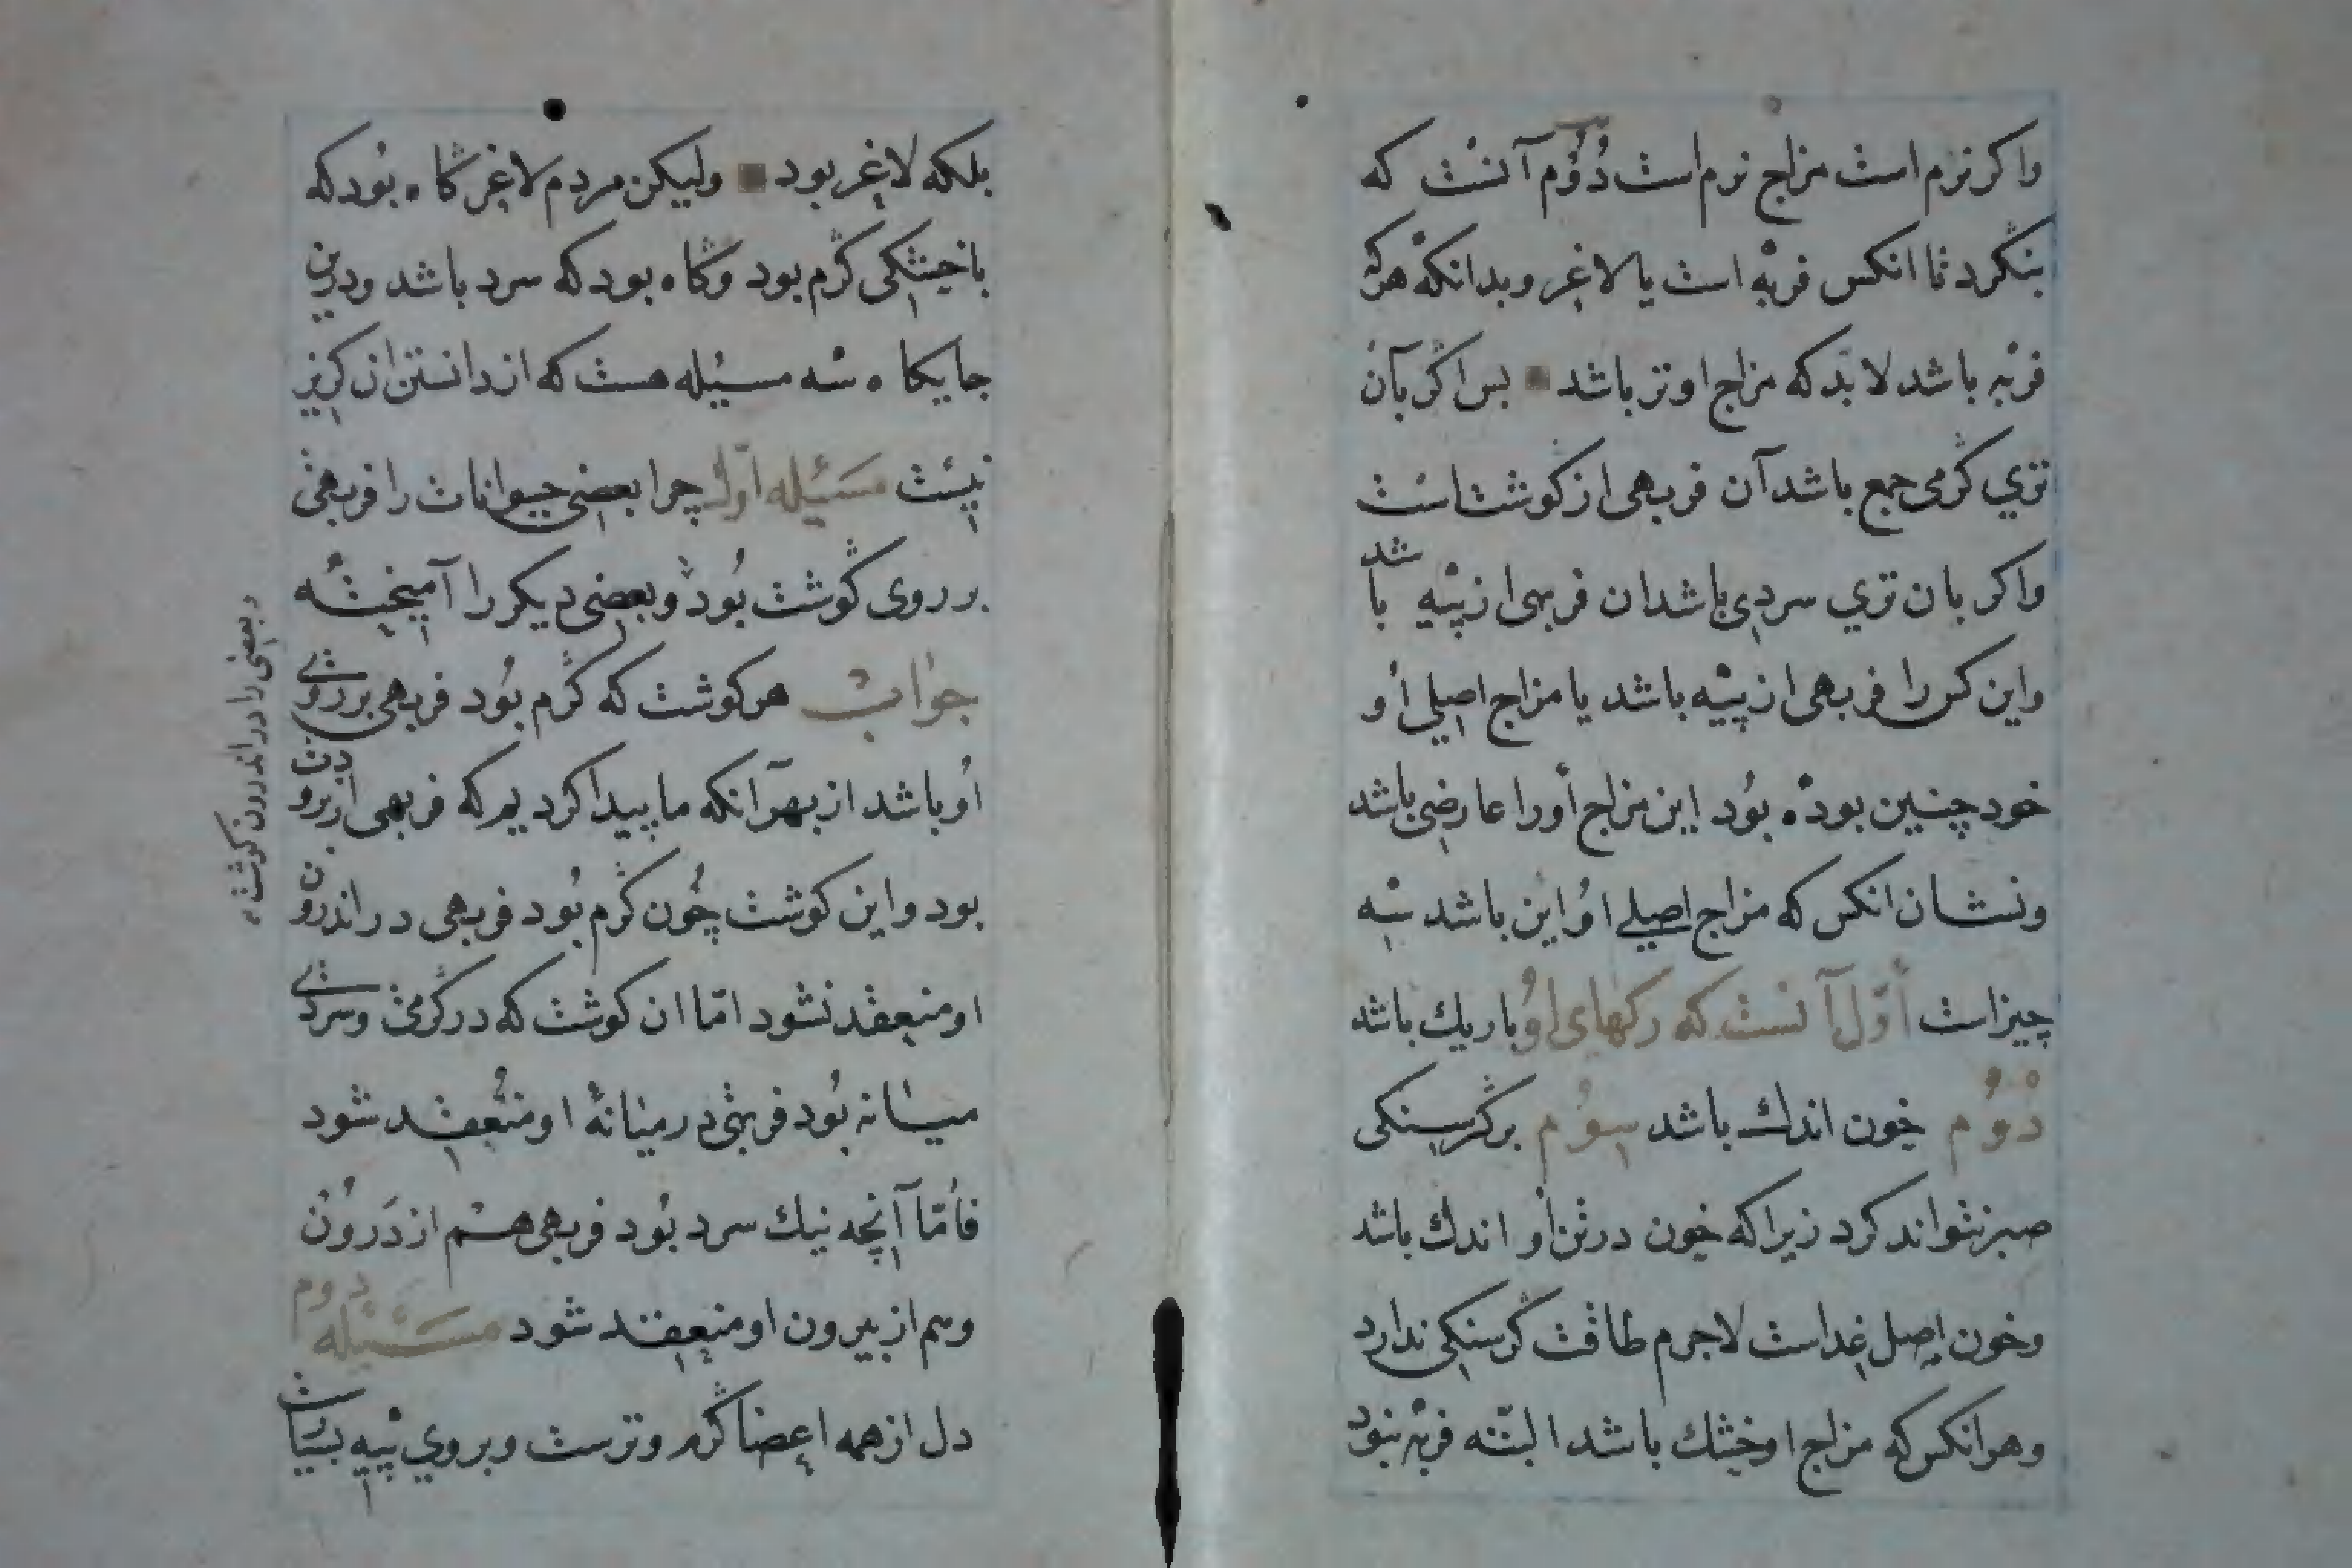 واکر نرم است مزاج نرم است دُوُم آنست که
بنکرد تا انکس فربه است یا لاغر و بدانکه هرکه
فربه باشد لابد که مزاج او تر باشد بس اکر بآن
تری کرمی جمع باشد آن فربهی از کوشت است
واکر بان تری سردی باشد ان فربهی از پیه باشد
واین کس را فربهی از پیه باشد یا مزاج اصلی او
خود چنین بوده بود این مزاج اورا عارضی باشد
ونشان انکس که مزاج اصلی او این باشد سه
چیز است اوّل آنست که رکهای او باریك باشد
دُوُم خون اندك باشد سوُم بر کرسنکی
صبر نتواند کرد زیرا که خون در تن او اندك باشد
وخون اصل غداست لاجرم طاقت کرسنکی ندارد
وهر انکس که مزاج او خشك باشد البته فربه نبود
بلکه لاغر بود ولیکن مردم لاغر کاه بود که
با خشکی کرم بود وکاه بود که سرد باشد ودرین
جایکاه سه مسئله هست که از دانستن ان کریز
نیست مسئله اوّل چرا بعضی حیوانات را فربهی
بر روی کوشت بود وبعضی دیکر را آمیخته
وبعضی را در اندرون کوشت
جواب هر کوشت که کرم بود فربهی بر روی
او باشد از بهر آنکه ما پیدا کردیم که فربهی از برودت
بود واین کوشت چون کرم بود فربهی در اندرون
او منعقد نشود امّا ان کوشت که در کرمی وسردی
میانه بود فربهی در میانهٔ او منعقد شود
فأمّا آنچه نیك سرد بود فربهی هم از درون
وهم از بیرون او منعقد شود مسئله دوم
دل از همه اعضا کرم وترست وبر وی پیه بسیارست